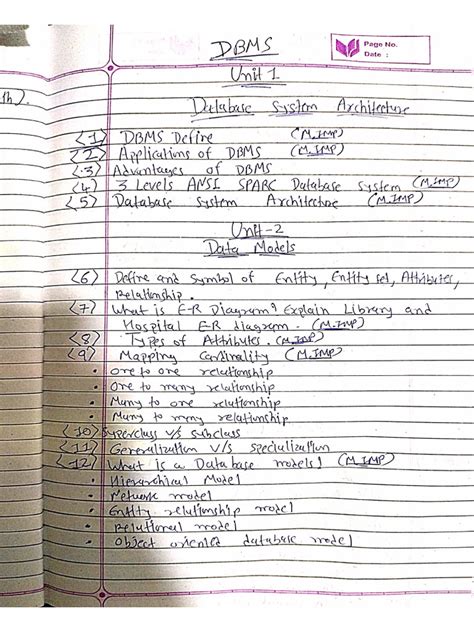 DBMS
Page No.
Date :
Unit 1
th).
Database System Architecture
<1> DBMS Define (M.IMP)
<2> Applications of DBMS (M.IMP)
<3> Advantages of DBMS
<4> 3 Levels ANSI SPARC Database System (M.IMP)
<5> Database System Architecture (M.IMP)
Unit-2
Data Models
<6> Define and Symbol of Entity, Entity set, Attributes,
Relationship.
<7> What is E-R Diagram? Explain Library and
Hospital E-R diagram. (M.IMP)
<8> Types of Attributes. (M.IMP)
<9> Mapping Cardinality (M.IMP)
• One to one relationship
• One to many relationship
• Many to one relationship
• Many to many relationship
<10> Superclass v/s subclass
<11> Generalization v/s specialization
<12> What is a Database models! (M.IMP)
• Hierarchical Model
• Network model
• Entity relationship model
• Relational model
• Object oriented database model